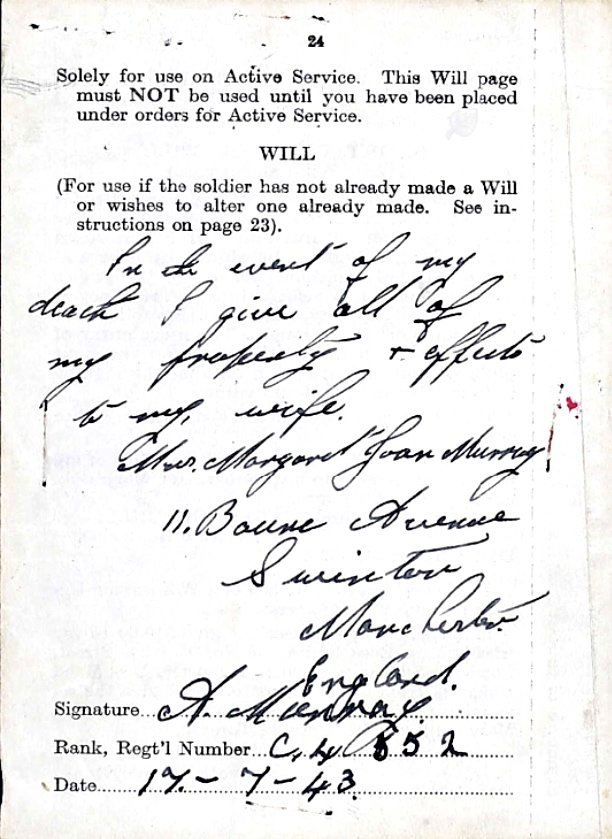 24
Solely for use on Active Service. This Will page
must NOT be used until you have been placed
under orders for Active Service.
WILL
(For use if the soldier has not already made a Will
or wishes to alter one already made. See in-
structions on page 23).
In the event of my
death I give all of
my property + effects
to my wife.
Mrs. Margaret Joan Murray
11. Bourne Avenue
Swinton
Manchester
England.
Signature A. Murray.
Rank, Regt'l Number
Date 17-7-43